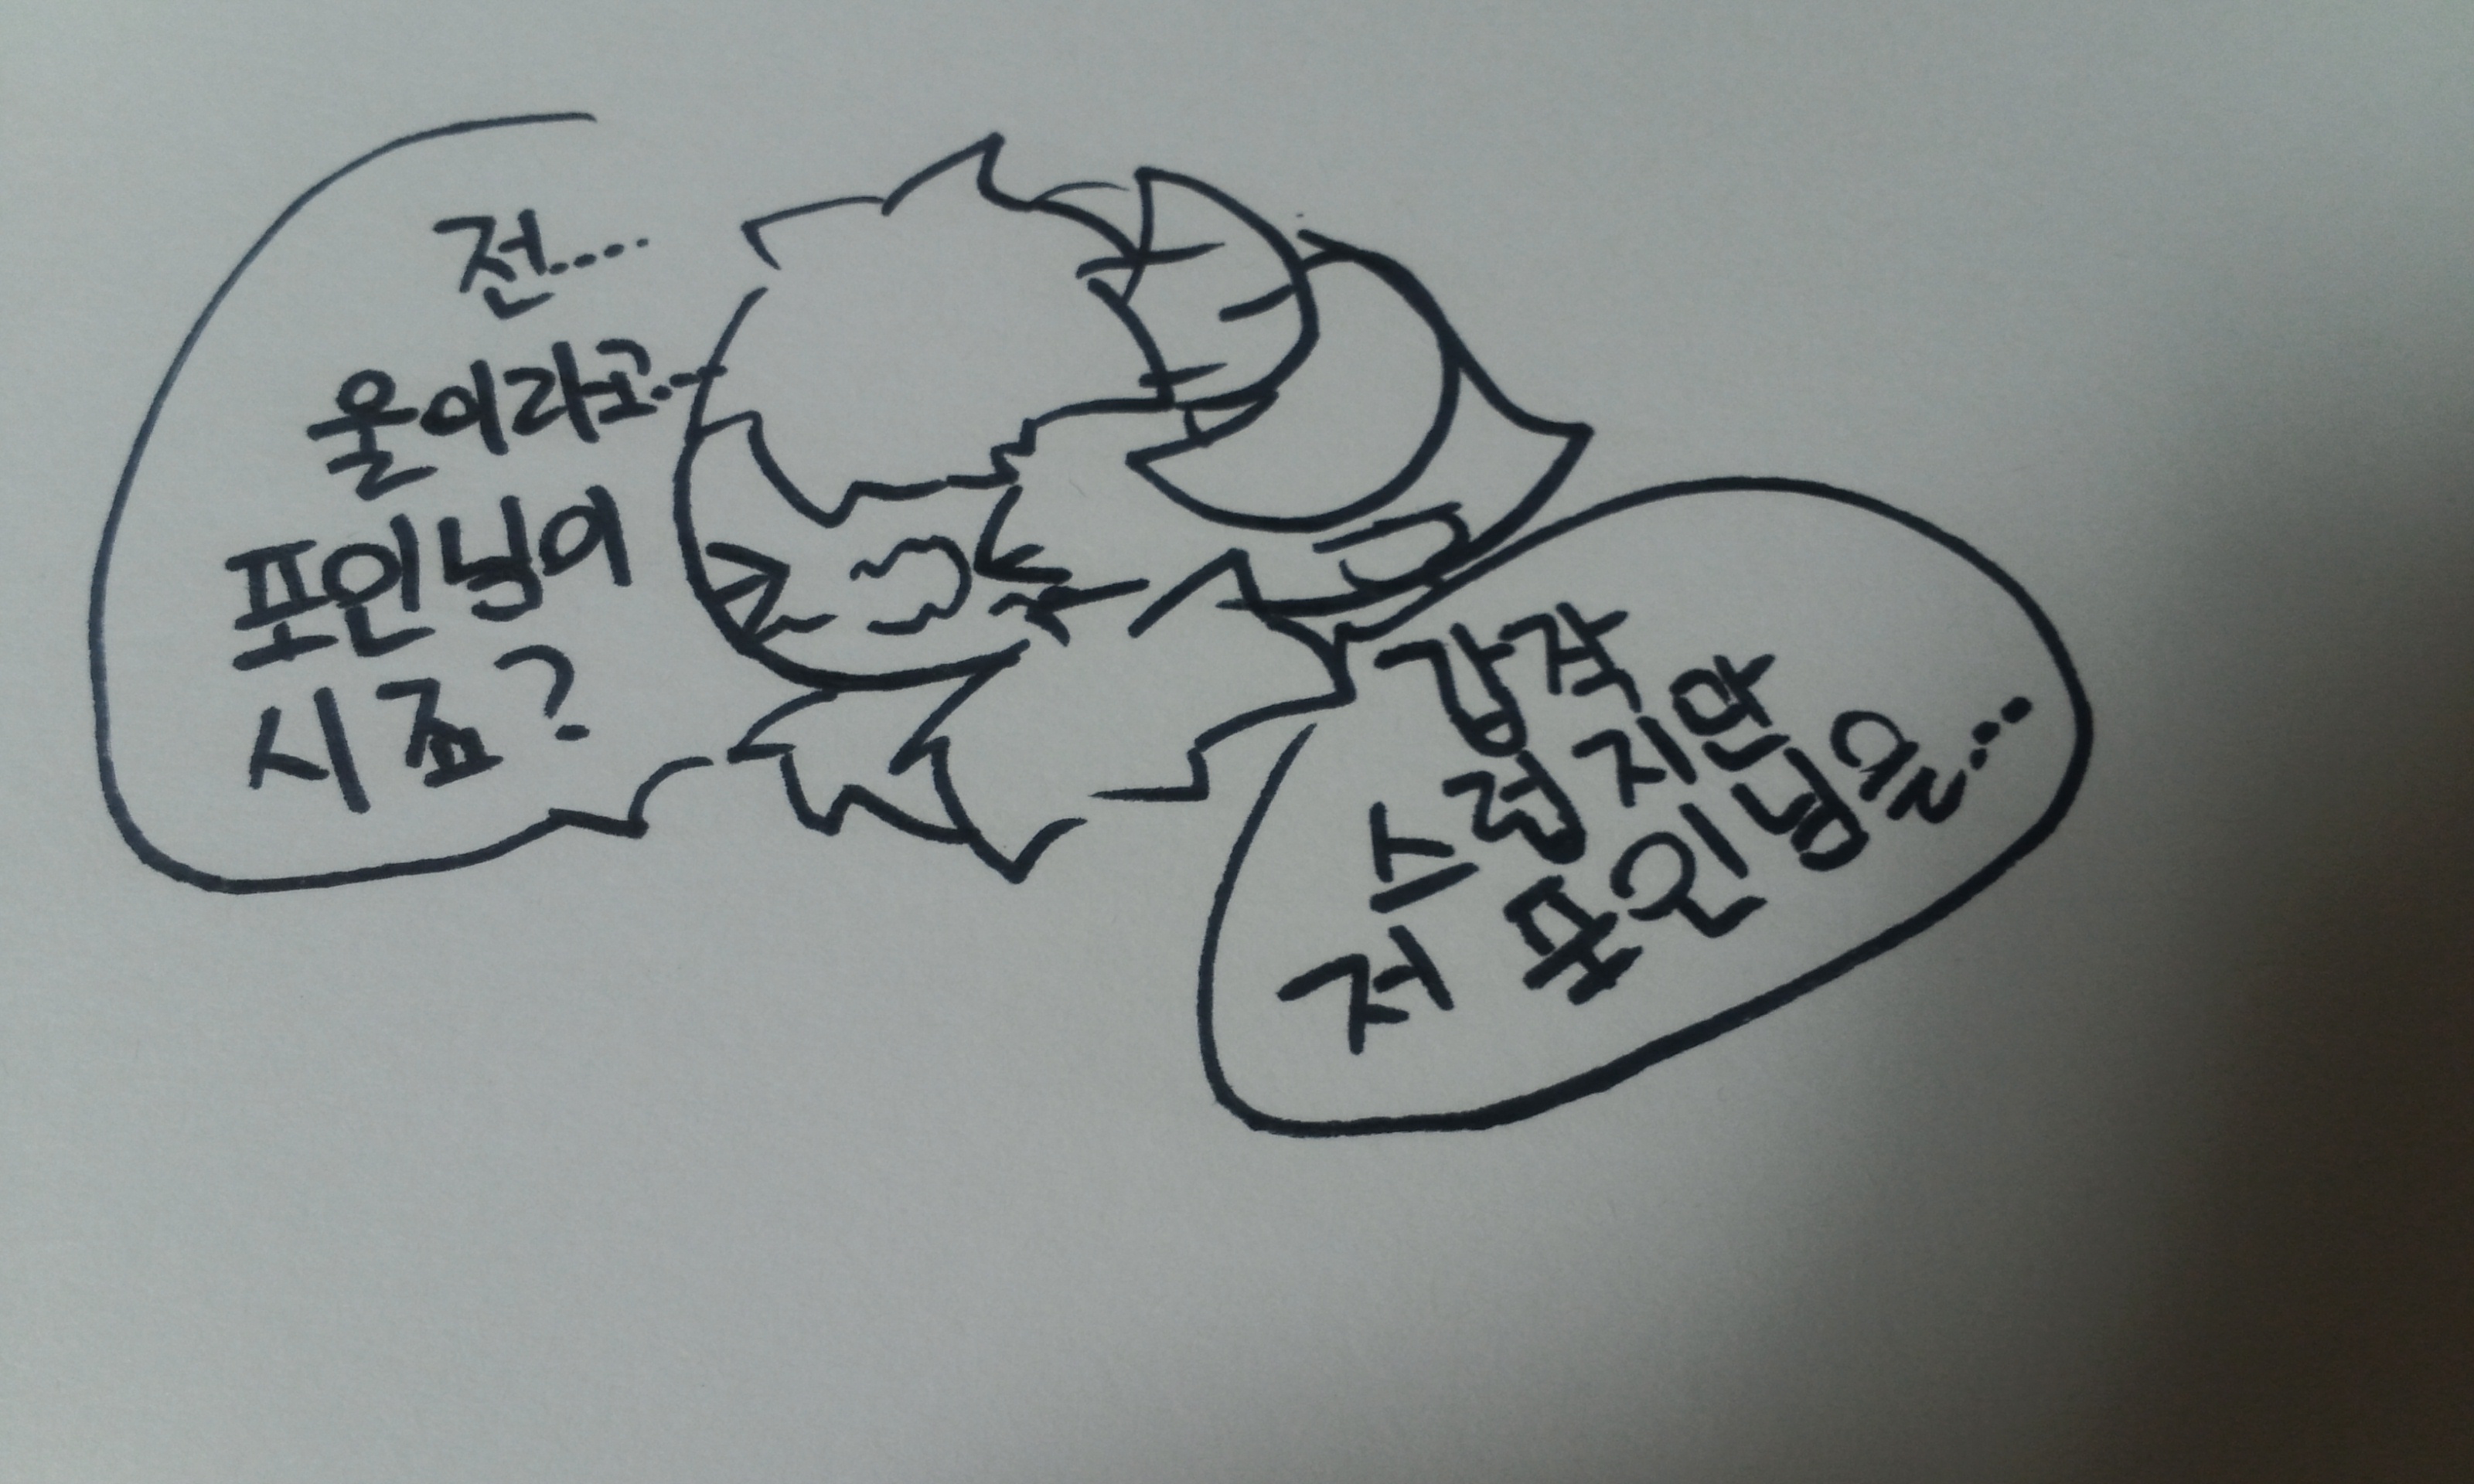 전....
울이라고..--
포인님이
시죠?
갑작
스럽지만
저 포인님은...